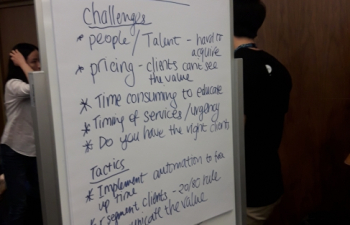 Challenges
* people/Talent - hard to
acquire
* pricing - clients can't see
the value
* Time consuming to educate
* Timing of services/urgency
* Do you have the right clients
Tactics
* Implement automation to free
up time
* segment clients - 20/80 rule
the value